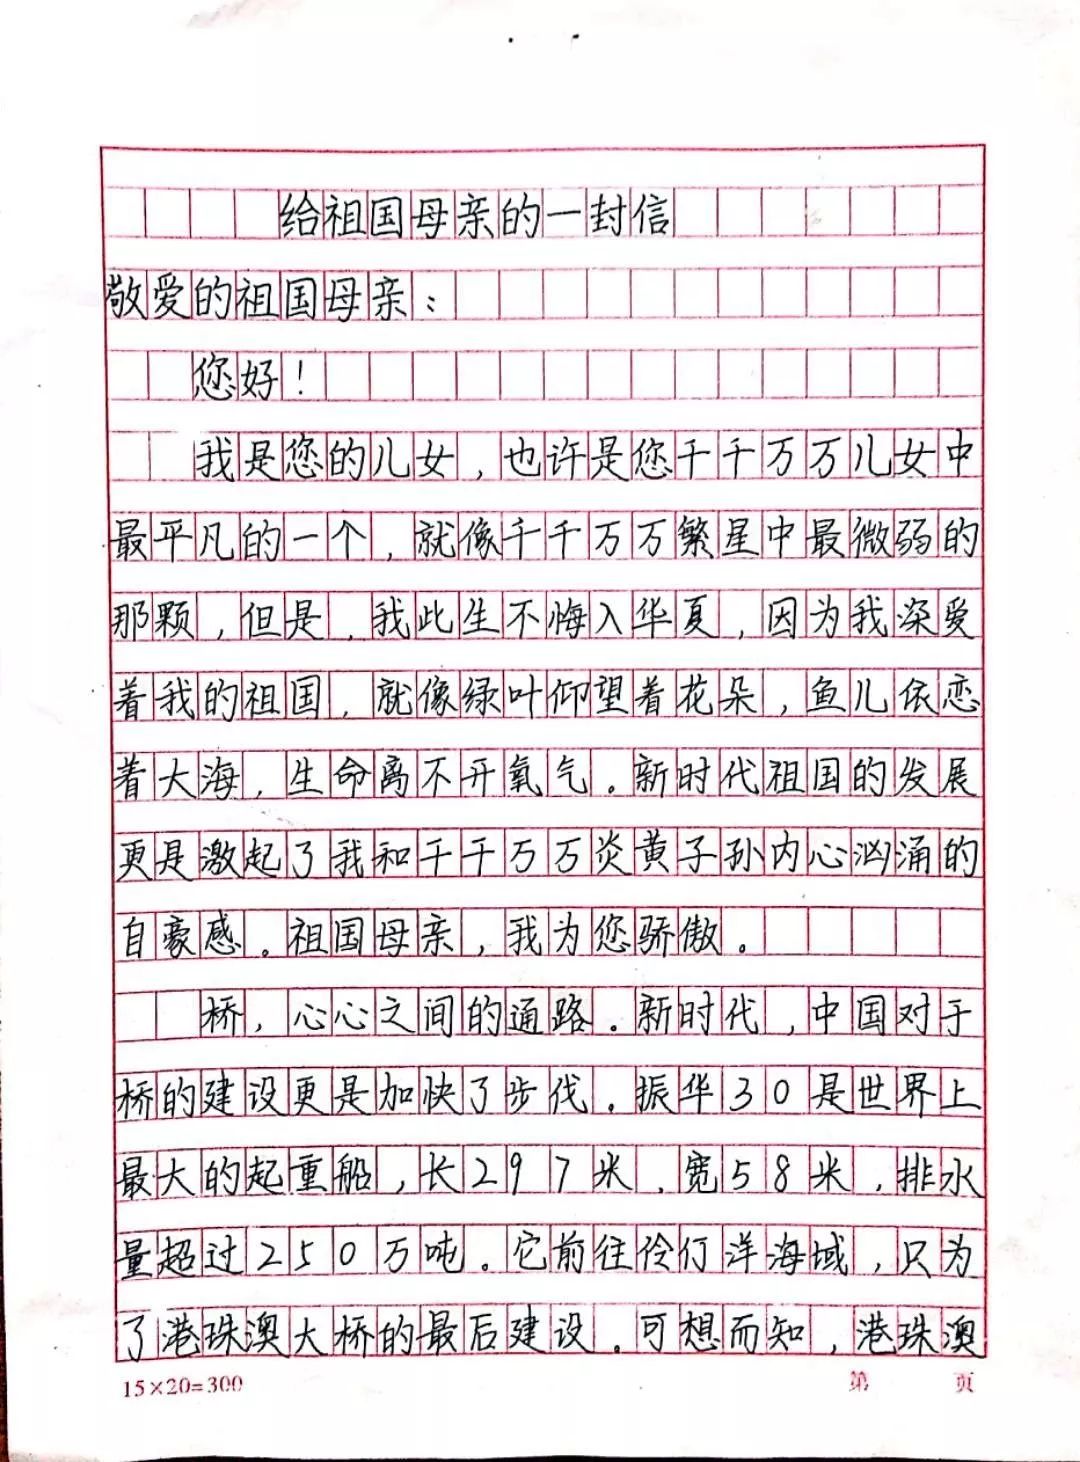 给祖国母亲的一封信
敬爱的祖国母亲：
您好！
我是您的儿女，也许是您千千万万儿女中
最平凡的一个，就像千千万万繁星中最微弱的
那颗，但是，我此生不悔入华夏，因为我深爱
着我的祖国，就像绿叶仰望着花朵，鱼儿依恋
着大海，生命离不开氧气。新时代祖国的发展
更是激起了我和千千万万炎黄子孙内心汹涌的
自豪感。祖国母亲，我为您骄傲。
桥，心心之间的通路。新时代，中国对于
桥的建设更是加快了步伐。振华30是世界上
最大的起重船，长297米，宽58米，排水
量超过250万吨。它前往伶仃洋海域，只为
了港珠澳大桥的最后建设。可想而知，港珠澳
15×20=300
第 页